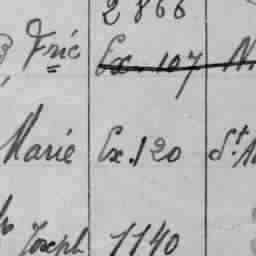 2866
Fric Ex. 107 N.
Marie Ex. 120 St.
Joseph 1140